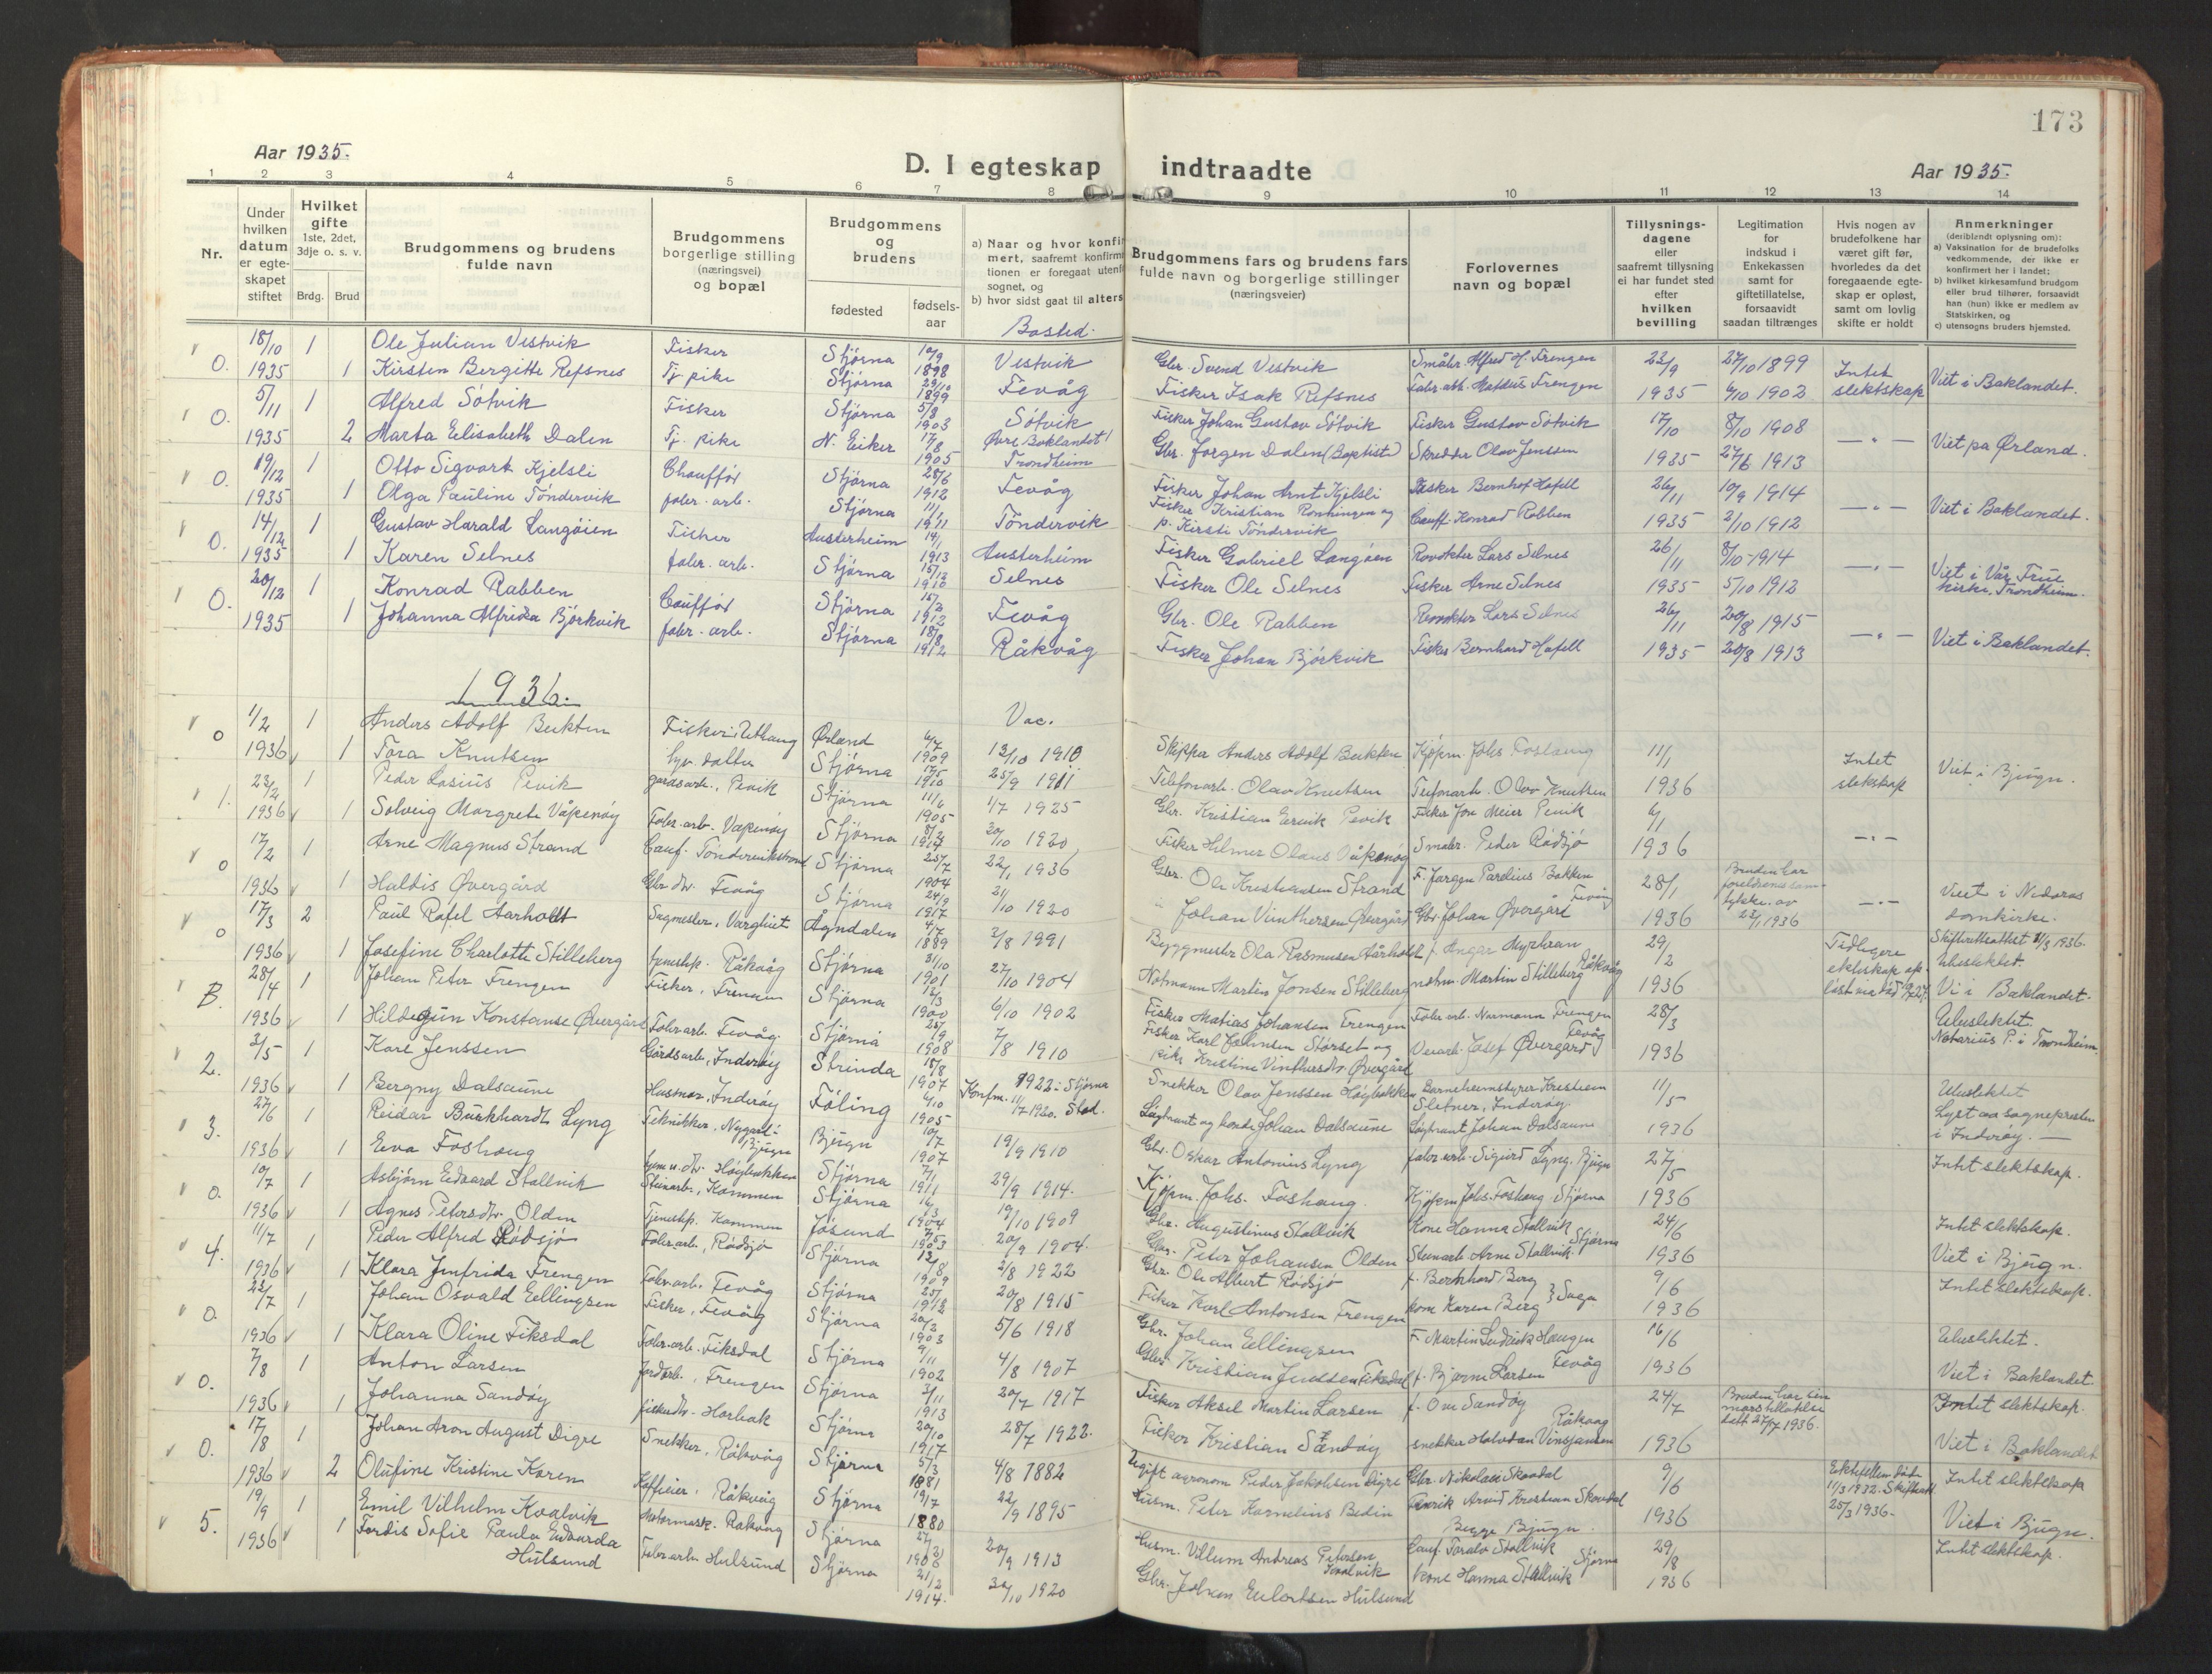 173
Aar 1935.
D. I egteskap indtraadte
Aar 1935.
1 2 3 4 5 6 7 8 9 10 11 12 13 14
Nr.
Under hvilken datum er egteskapet stiftet
Hvilket gifte 1ste, 2det, 3dje o. s. v.
Brdg. Brud
Brudgommens og brudens fulde navn
Brudgommens borgerlige stilling (næringsvei) og bopæl
Brudgommens og brudens
fødested
fødsels-aar
a) Naar og hvor konfir
mert, saafremt konfirm
tionen er foregaat utenf
sognet, og
b) hvor sidst gaat til alters
Bosted.
Brudgommens fars og brudens fars fulde navn og borgerlige stillinger (næringsveier)
Forlovernes navn og bopæl
Tillysnings-dagene eller saafremt tillysning ei har fundet sted efter hvilken bevilling
Legitimation for indskud i Enkekassen samt for giftetillatelse, forsaavidt saadan tiltrænges
Hvis nogen av brudefolkene har været gift før, hvorledes da det foregaaende egte-skap er opløst, samt om lovlig skifte er holdt
Anmerkninger (deriblandt oplysning om):
a) Vaksination for de brudefolks vedkommende, der ikke er konfirmert her i landet;
b) hvilket kirkesamfund brudgom eller brud tilhører, forsaavidt han (hun) ikke er medlem av Statskirken, og
c) utensogns bruders hjemsted.
0. 18/10 1 Ole Julian Vestvik Fisker Stjørna 10/9 1898 Vestvik Gbr. Svend Vestvik Småbr. Alfred H. Frengen 22/9 27/10 1899 Intet
1935 1 Kirsten Bergitte Refsnes Tj. pike Stjørna 29/10 1899 Fevåg Fisker Isak Refsnes Fabr. arb. Mateus Frengen 1935 4/10 1902 slektskap Viet i Baklandet.
0. 5/11 1 Alfred Sötvik Fisker Stjørna 5/8 1903 Sötvik Fisker Johan Gustav Sötvik Fisker Gustav Sötvik 17/10 8/10 1908
1935 2 Marta Elisabeth Dalen Tj. pike N. Eiker 17/8 1905 Øvre Baklandet 1 Trondheim Gbr. Jørgen Dalen (Baptist) Skredder Olav Jenssen 1935 27/6 1913 — " — Viet på Ørland.
0. 19/12 1 Otto Sigvart Kjelsli Chaufför Stjørna 28/6 1912 Fevåg Fisker Johan Arnt Kjelsli Fisker Bernhof Hofell 26/11 10/9 1914
1935 1 Olga Pauline Töndervik faber. arb. Stjørna 1911 Töndervik Fisker Kristian Ronningen og p. Kirsti Töndervik Cauff. Konrad Rabben 1935 2/10 1912 — " — Viet i Baklandet.
0. 14/12 1 Gustav Harald Langöien Fisker Austerheim 14/1 1913 Austerheim Fisker Gabriel Langöen Lars Selnes 26/11 8/10 1914
1935 1 Karen Selnes faber. arb. Stjørna 15/12 1910 Selnes Fisker Ole Selnes Fisker Arne Selnes 1935 5/10 1912 — " — Viet i Vår Frue kirke, Trondheim.
0. 20/12 1 Konrad Rabben Caufför Stjørna 1912 Fevåg Gbr. Ole Rabben Lars Selnes 26/11 20/8 1915
1935 1 Johanna Alfrida Björkvik faber. arb. Stjørna 18/8 1912 Råkvåg Fisker Johan Björkvik Fisker Bernhard Hofell 1935 20/8 1913 — " — Viet i Baklandet.
1936.
Vac.
0 1/2 1 Anders Adolf Bukten Fisker i Uthaug Ørland 6/7 1909 13/10 1910 Skipper Anders Adolf Bukten Kjøpm. Johs Foshaug 11/1 Intet
1936 1 Tora Knutsen hjv. datter Stjørna 17/5 1910 25/9 1911 Telefonarb. Olav Knutsen Telefonarb. Olav Knutsen 1936 slektskap Viet i Bjugn.
1. 23/2 1 Peder Lasius Pevik gårdsarb., Pevik Stjørna 11/6 1905 1/7 1925 Gbr. Kristian Pevik Fisker Jon Meier Pevik 6/1
1936 1 Solveig Margrete Våpenøy Fabr. arb. Våpenøy Stjørna 8/2 1914 20/10 1920 Fisker Helmer Olaus Våpenøy Småbr. Peder Rödsjö 1936 — " —
0 17/2 1 Arne Magnus Strand Cauf. Töndervikstrand Stjørna 25/7 1904 22/1 1936 Gbr. Ole Kristiansen Strand F. Jørgen Parelius Bakken Fevåg 28/1 Bruden har foreldrenes samtykke. av 23/1 1936 — " — Viet i Nidaros
1936 1 Haldis Øvergård Gbr. dtr. Fevåg Stjørna 24/9 1917 21/10 1920 " Johan Vinthersen Øvergård Gbr. Johan Øvergård 1936 domkirke.
0 17/3 2 Paul Rafel Aarholt Sagmester, Varghiet Agndalen 4/7 1889 3/8 1991 Byggmester Ola Rasmussen Aarholt f. Angar Myrhran Råkvåg 29/2 Tidligere Skifterettsattest 11/3 1936.
1936 1 Josefine Charlotte Stilleberg tjenestep. Råkvåg Stjørna 31/10 1901 27/10 1904 Notmann Martin Jonsen Stilleberg notm. Martin Stilleberg 1936 Ubeslektet. Vi i Baklandet.
B. 28/4 1 Johan Peter Frengen Fisker, Frengen Stjørna 12/3 1900 6/10 1902 Fisker Matias Johansen Frengen Fabr. arb. Normann Frengen Fevåg 28/3 Ubeslektet.
1936 1 Hildegun Konstanse Øvergård Fabr. arb. Fevåg. Stjørna 25/9 1908 7/8 1910 Fisker Karl Johnsen Störset og pike Kristine Vinthersdtr. Øvergård Josef Øvergård 1936 Notarius P. i Trondheim.
2. 2/5 1 Kare Jenssen Gårdsarb., Inderöy Strinda 18/8 1907 1922 i Stjørna Snekker Olav Jenssen Höybakken Barneheimstyrer Kristian Sletner, Inderöy. 11/5 Ubeslektet
1936 1 Bergny Dalsaune Husmor, Inderöy Föling 6/10 1905 Konfm. 11/7 1920. Stod. Løytnant og bonde Johan Dalsaune Løytnant Johan Dalsaune 1936 Lyst av sognepresten i Inderöy.
3. 27/6 1 Reidar Burkhardt Lyng Tekniker, Nygard i Bjugn Bjugn 10/7 1907 19/9 1910 Gbr. Oskar Antonius Lyng fabr. arb. Sigurd Lyng. Bjugn 27/5 Intet slektskap.
1936 1 Eva Foshaug hjem. v. dtr. Höybakken Stjørna 7/1 1911 29/9 1914. Kjøpm. Johs. Foshaug. Kjøpm Johs. Foshaug. Stjørna 1936
0. 10/7 1 Asbjörn Edvard Stallvik Steinarb., Kommen Stjørna 16/3 1904 19/10 1909 Gbr. Augustinus Stallvik Kone Hanna Stallvik Stjørna 24/6 Intet slektskap.
1936 1 Agnes Petersdtr. Olden Tjenestep. Kommen Jösund 1903 20/9 1904. Gbr. Peter Johansen Olden Steinarb. Arne Stallvik 1936 Viet i Bjugn.
4. 11/7 1 Peder Alfred Rödsjö Fabr. arb., Rödsjö Stjørna 12/8 1909 2/8 1922 Gbr. Ole Albert Rödsjö f. Berkhard Berg 9/6 Intet slektskap.
1936 1 Klara Jenfrida Frengen Fabr. arb. Fevåg Stjørna 1912 20/8 1915 Fisker Karl Antonsen Frengen kone Karen Berg 1936
0. 22/7 1 Johan Osvald Ellingsen Fisker, Fevåg Stjørna 20/2 1903 5/6 1918 Gbr. Johan Ellingsen F. Martin Ludvik Haugen Fevåg 16/6 Ubeslektet.
1936 1 Klara Oline Fiksdal Fabr. arb. Fiksdal Stjørna 9/11 1902 4/8 1907 Gbr. Kristian Judsen Fiksdal f. Bjarne Larsen 1936 Viet i Baklandet.
0. 7/8 1 Anton Larsen Jordarb., Frengen Stjørna 3/11 1913 20/7 1917 Fisker Aksel Martin Larsen f. Ove Sandöy Råkvåg 24/7 Bruden har sin mors tillatelse datt 27/7 1936. Intet slektskap.
1936 1 Johanna Sandöy fiskerdtr. Harbak Stjørna 20/10 1917 28/7 1922. Fisker Kristian Sandöy snekker Halvdan Vinsjansen 1936 Viet i Baklandet
0. 17/8 1 Johan Aron August Digre Snekker, Råkvåg Stjørna 5/3 1881 4/8 1882 Ugift agronom Peder Jakobsen Digre Gbr. Nikolai Skavdal 9/6 Ektefellen döde 11/3 1932. Skifteatt 25/3 1936. Intet slektskap
1936 2 Olufine Kristine Karen Kaffeier, Råkvåg Stjørna 19/7 1880 22/9 1895 Husm. Peter Kornelius Bedin Arvid Kristian Skavdal Begge Bjugn. 1936 Viet i Bjugn.
5. 19/9 1 Emil Vilhelm Kvalvik Motormask. Råkvåg Stjørna 1908 20/9 1913 Husm. Villum Andreas Petersen Kvalvik Cauf. Toralv Stallvik Stjørna 29/8 Intet slektskap.
1936 1 Tordis Sofie Paula Edvarda Hulsund Fabr. arb. Hulsund Stjørna 21/2 1914. 30/10 1920 Gbr. Johan Hulsund kone Hanna Stallvik 1936